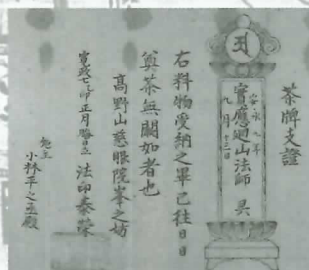 茶牌支證
安永九年
寳應廻山法師 具
九月十三日
右料物受納之畢已往日日
奠茶無闕如者也
高野山慈眼院峯之坊
寛政七乙卯正月晦日立 法印泰榮
施主
小林平之丞殿